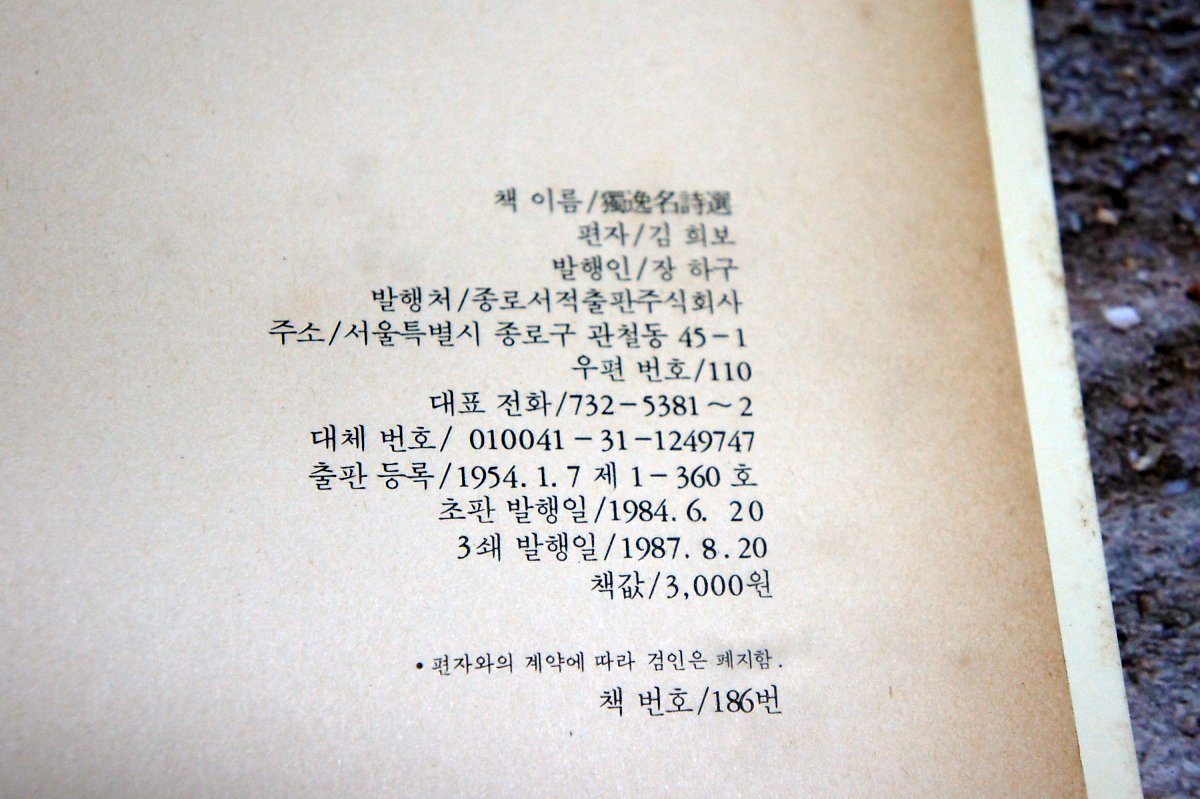 책 이름/獨逸名詩選
편자/김 희보
발행인/장 하구
발행처/종로서적출판주식회사
주소/서울특별시 종로구 관철동 45-1
우편 번호/110
대표 전화/732-5381~2
대체 번호/ 010041-31-1249747
출판 등록/1954.1.7 제 1-360 호
초판 발행일/1984.6. 20
3쇄 발행일/1987.8.20
책값/3,000원
• 편자와의 계약에 따라 검인은 폐지함.
책 번호/186번